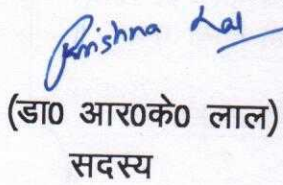 Krishna Lal
(डा0 आर0के0 लाल)
सदस्य